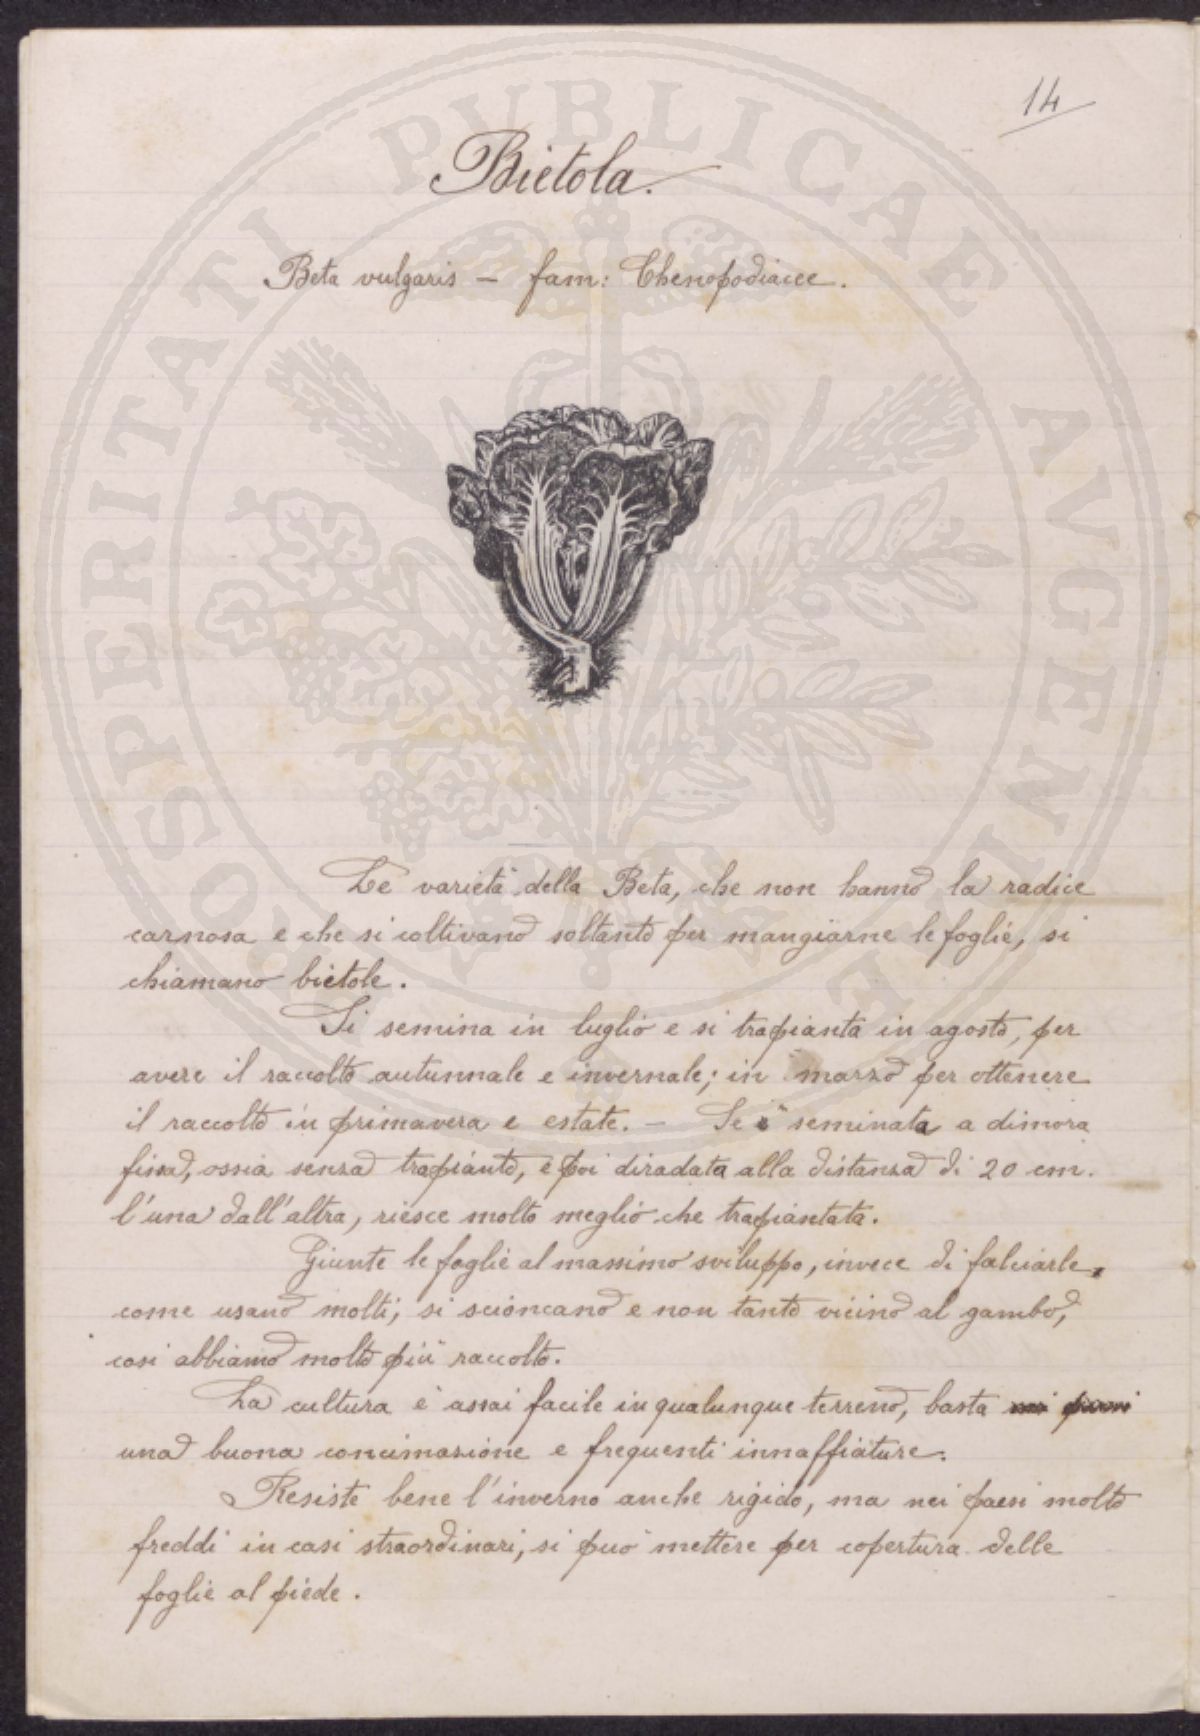 14
Bietola.
Beta vulgaris — fam: Chenopodiacee.
Le varietà della Beta, che non hanno la radice
carnosa e che si coltivano soltanto per mangiarne le foglie, si
chiamano bietole.
Si semina in luglio e si trapianta in agosto, per
avere il raccolto autunnale e invernale; in marzo per ottenere
il raccolto in primavera e estate. — Se è seminata a dimora
fissa, ossia senza trapianto, e poi diradata alla distanza di 20 cm.
l'una dall'altra, riesce molto meglio che trapiantata.
Giunte le foglie al massimo sviluppo, invece di falciarle,
come usano molti, si scioncano e non tanto vicino al gambo,
così abbiamo molto più raccolto.
La cultura è assai facile in qualunque terreno, basta
una buona concimazione e frequenti innaffiature.
Resiste bene l'inverno anche rigido, ma nei paesi molto
freddi in casi straordinari, si può mettere per copertura delle
foglie al piede.
PROSPERITATI PUBLICAE AVGENDAE